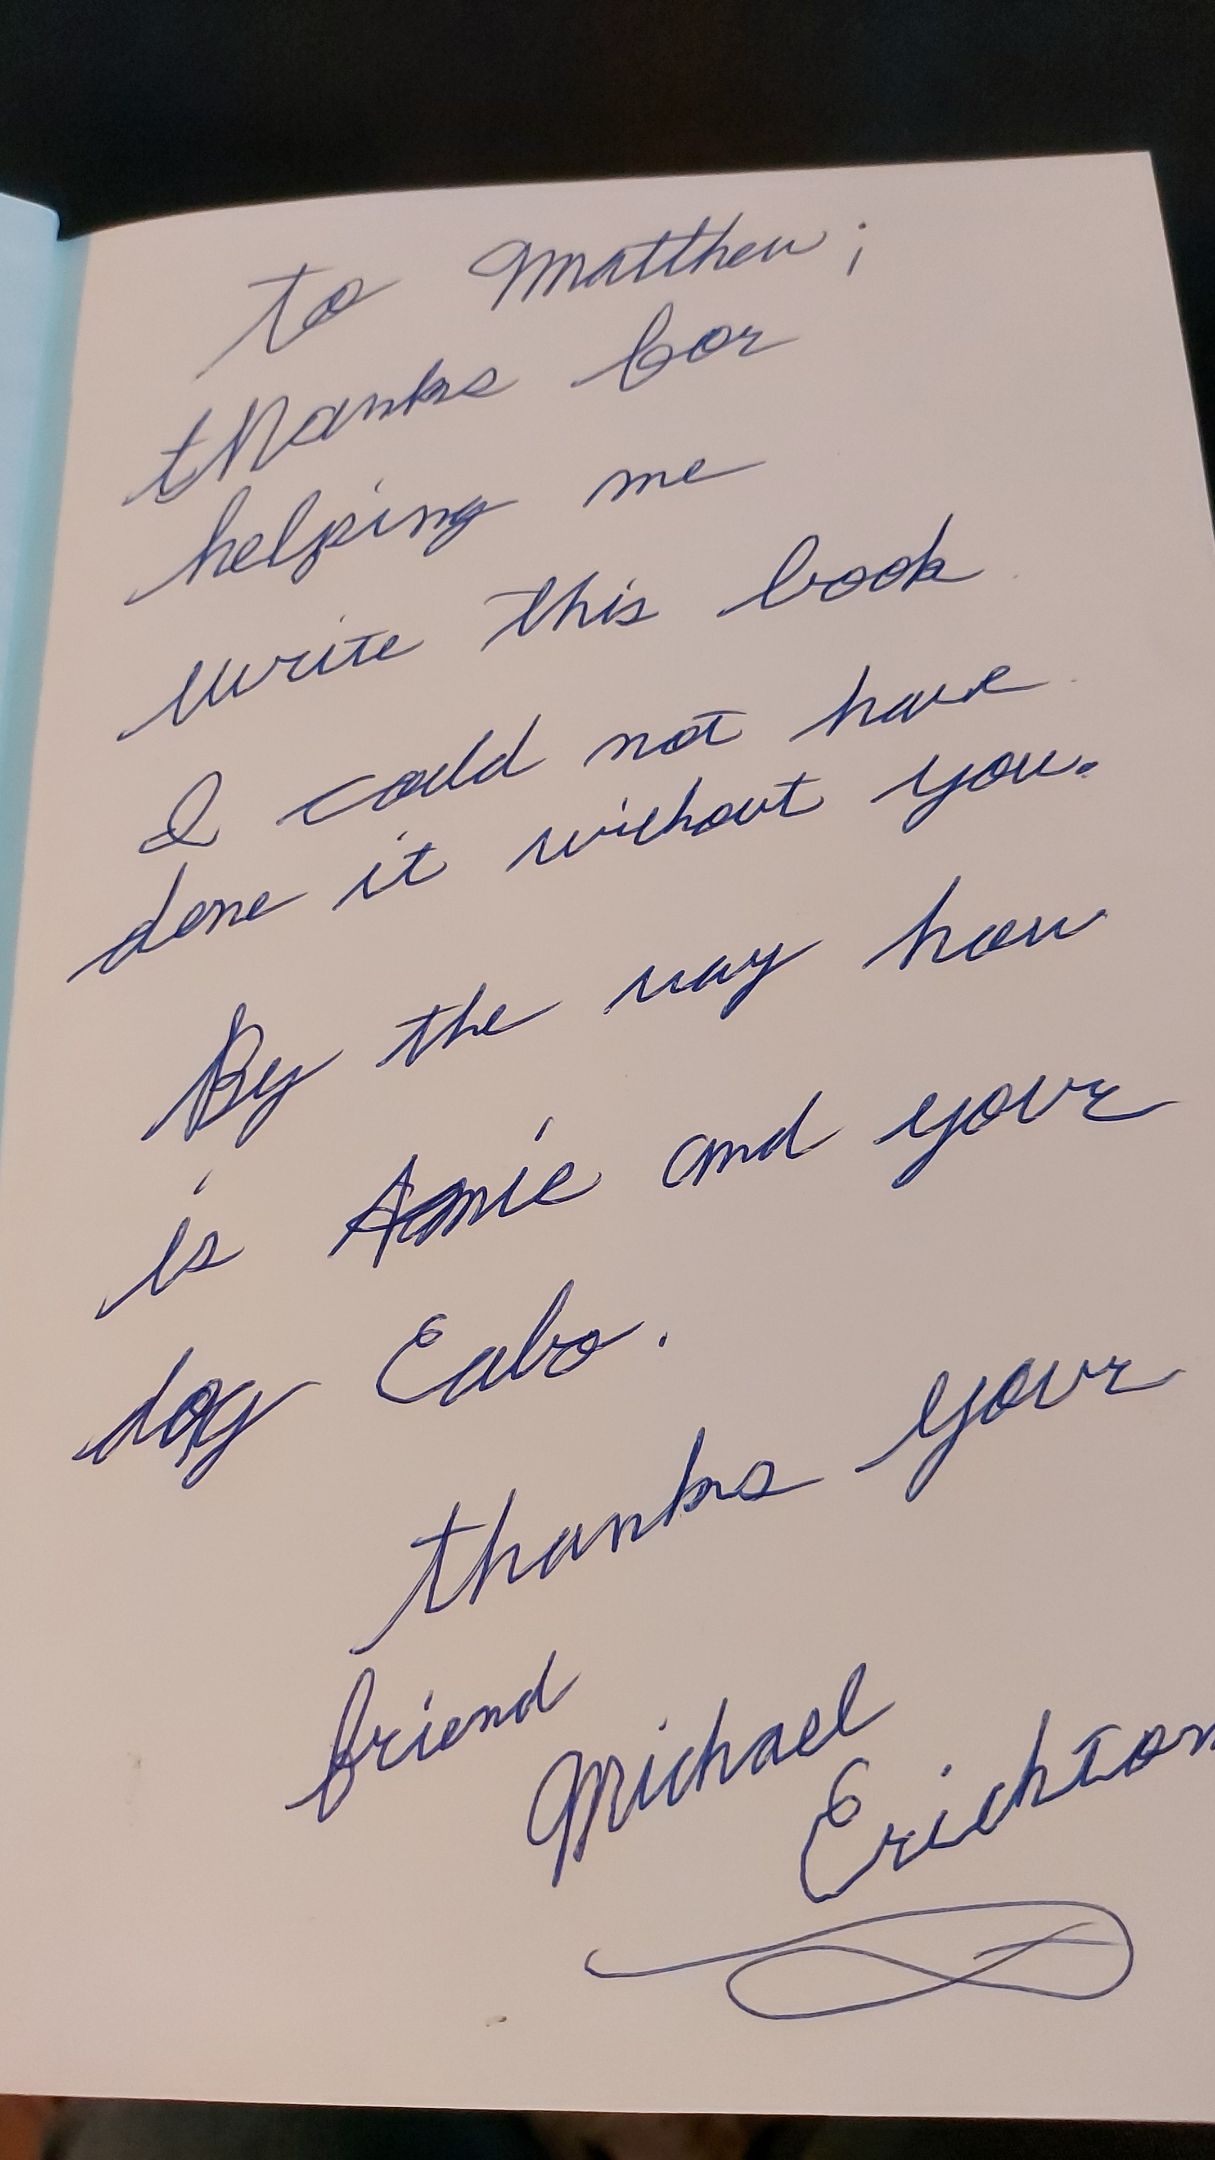 to Matthew;
thanks for
helping me
write this book
I could not have
done it without you.
By the way how
is Annie and your
dog Eabo.
thanks your
friend
Michael
Erichton